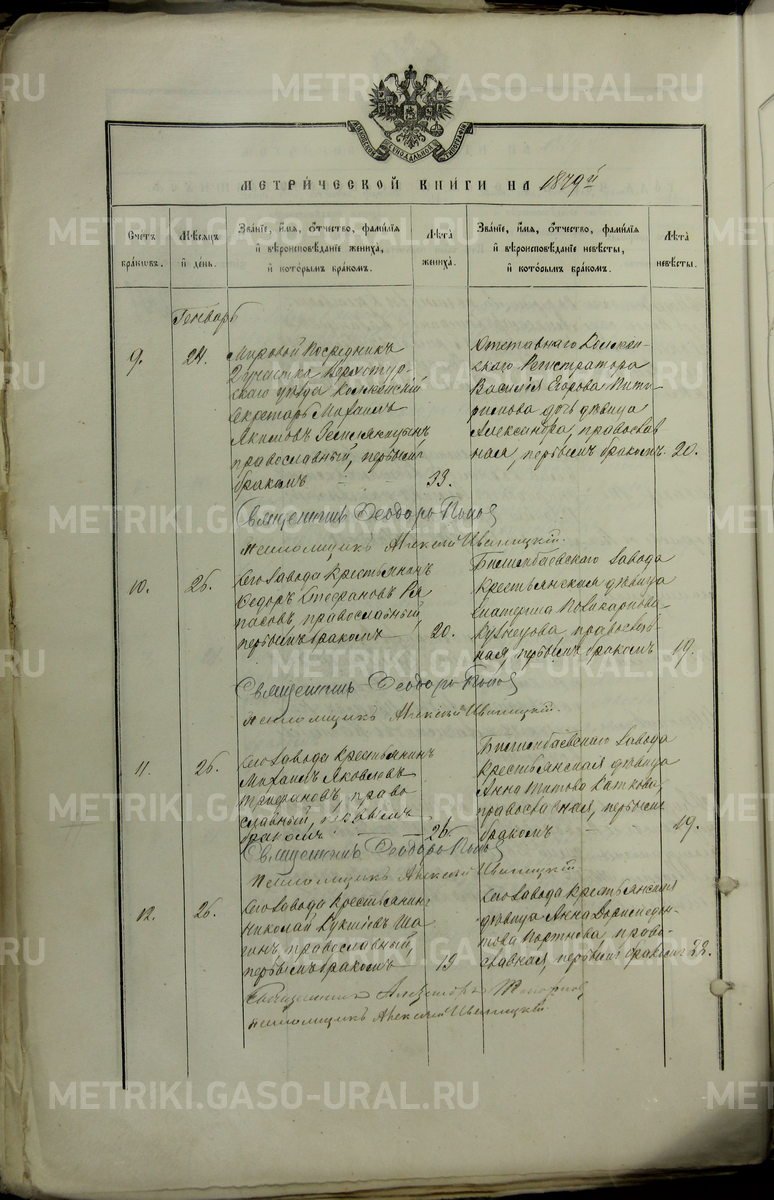 METRIKI.GASO-URAL.RU
МЕТРИЧЕСКОЙ КНИГИ НА 1879й
Счетъ браковъ.
Мѣсяцъ и день.
Званіе, имя, отчество, фамилія и вѣроисповѣданіе жениха, и которымъ бракомъ.
Лѣта жениха.
Званіе, имя, отчество, фамилія и вѣроисповѣданіе невѣсты, и которымъ бракомъ.
Лѣта невѣсты.
Генварь
9.
24.
Мировой Посредникъ
2 участка Верхотур-
скаго уѣзда Коллежскій
Секретарь Михаилъ
Акимовъ Земляницынъ
православный, первымъ
бракомъ
33.
Отставнаго Коллеж-
скаго Регистратора
Василія Егорова Пити-
римова дочь дѣвица
Александра, православ
ная, первымъ бракомъ.
20.
Священникъ Ѳеодоръ Поповъ
Псаломщикъ Алексѣй Ивановъ
10.
26.
Сего завода крестьянинъ
Ѳедоръ Стефановъ
православный,
первымъ бракомъ
20.
Билимбаевскаго завода
крестьянская дѣвица
Поликарпова
Кузнецова, православ
ная, первымъ бракомъ
19.
Священникъ Ѳеодоръ Поповъ
Псаломщикъ Алексѣй
11.
26.
Сего завода крестьянинъ
Михаилъ Яковлевъ
Трифановъ, право
славный, первымъ
бракомъ
26.
Билимбаевскаго завода
крестьянская дѣвица
Анна Титова Каткова,
православная, первымъ
бракомъ
19.
Священникъ Ѳеодоръ Поповъ
Псаломщикъ Алексѣй
12.
26.
Сего завода крестьянинъ
Николай Лукинъ Ша
гинъ, православный,
первымъ бракомъ
19
Сего завода крестьянская
дѣвица Анна Дормедон-
това Портнова, право-
славная, первымъ бракомъ
22.
Священникъ Александръ Топорковъ
Псаломщикъ Алексѣй